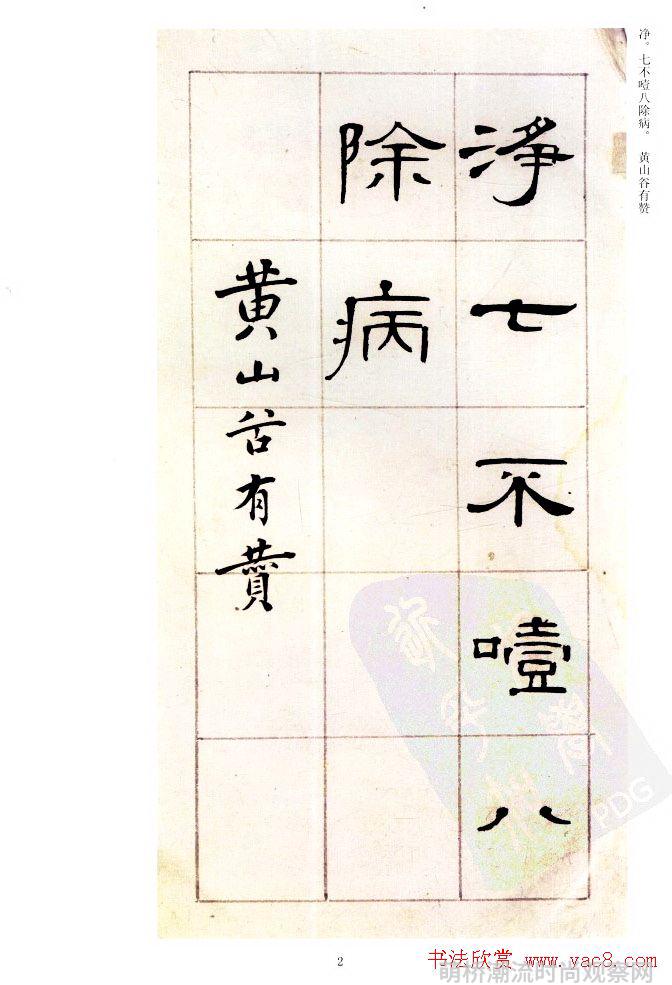 净。七不噎八除病。 黄山谷有赞
淨七不噎八
除病
黄山谷有賛
PDG
2
书法欣赏 www.yac8.com
萌桥潮流时尚观察网